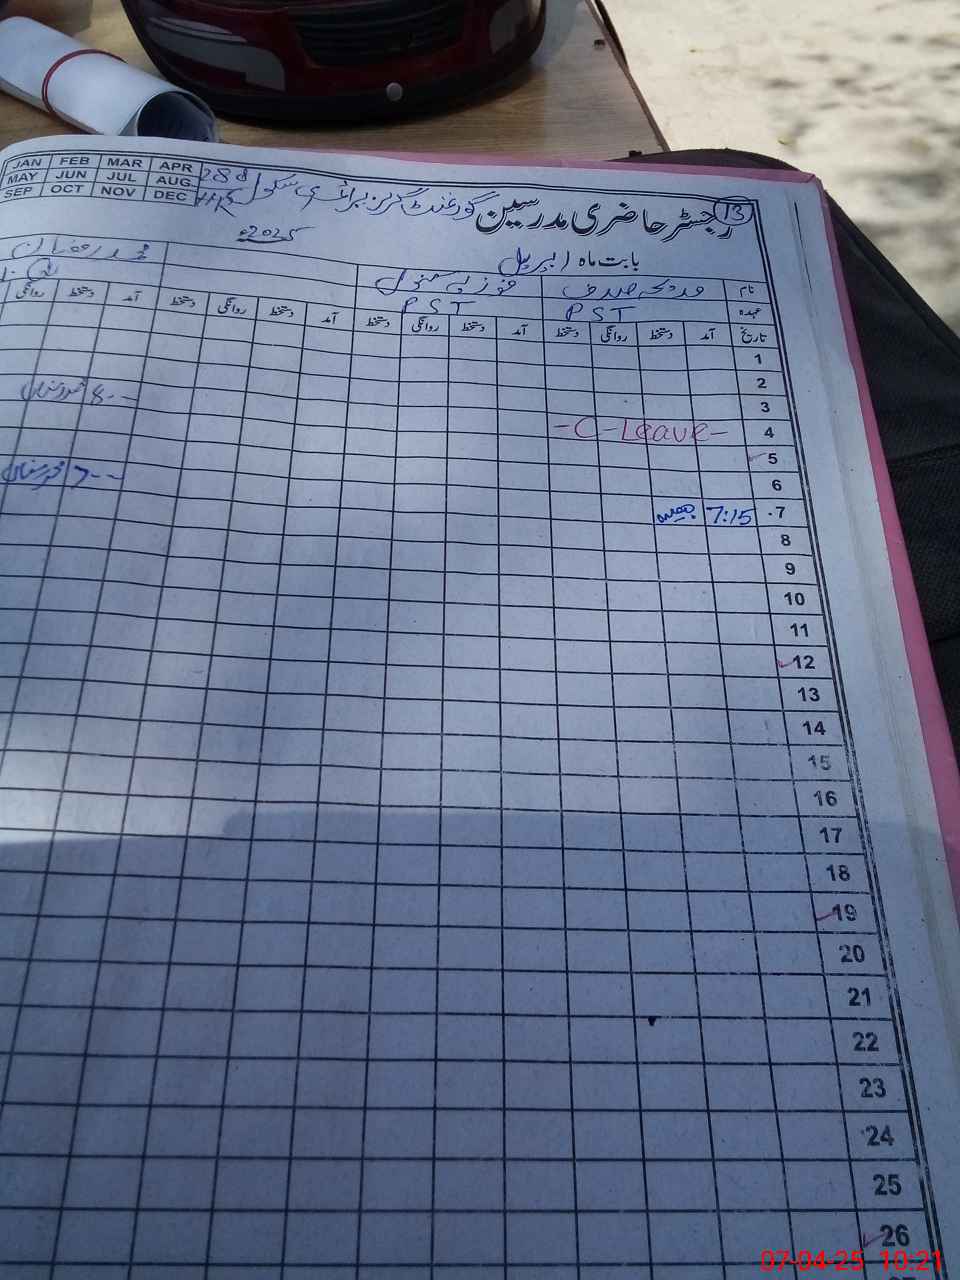 JAN FEB MAR APR
MAY JUN JUL AUG
SEP OCT NOV DEC
رجسٹر حاضری مدرسین 13
گورنمنٹ گرلز پرائمری سکول
2025ء
بابت ماہ اپریل
نام
محمد رمضان
عہدہ PST PST
تاریخ آمد دستخط روانگی دستخط آمد دستخط روانگی دستخط آمد دستخط روانگی دستخط آمد دستخط روانگی
1
2
3
4 -C-Leave-
5
6
7 7:15
8
9
10
11
12
13
14
15
16
17
18
19
20
21
22
23
24
25
26
07-04-25 10:21